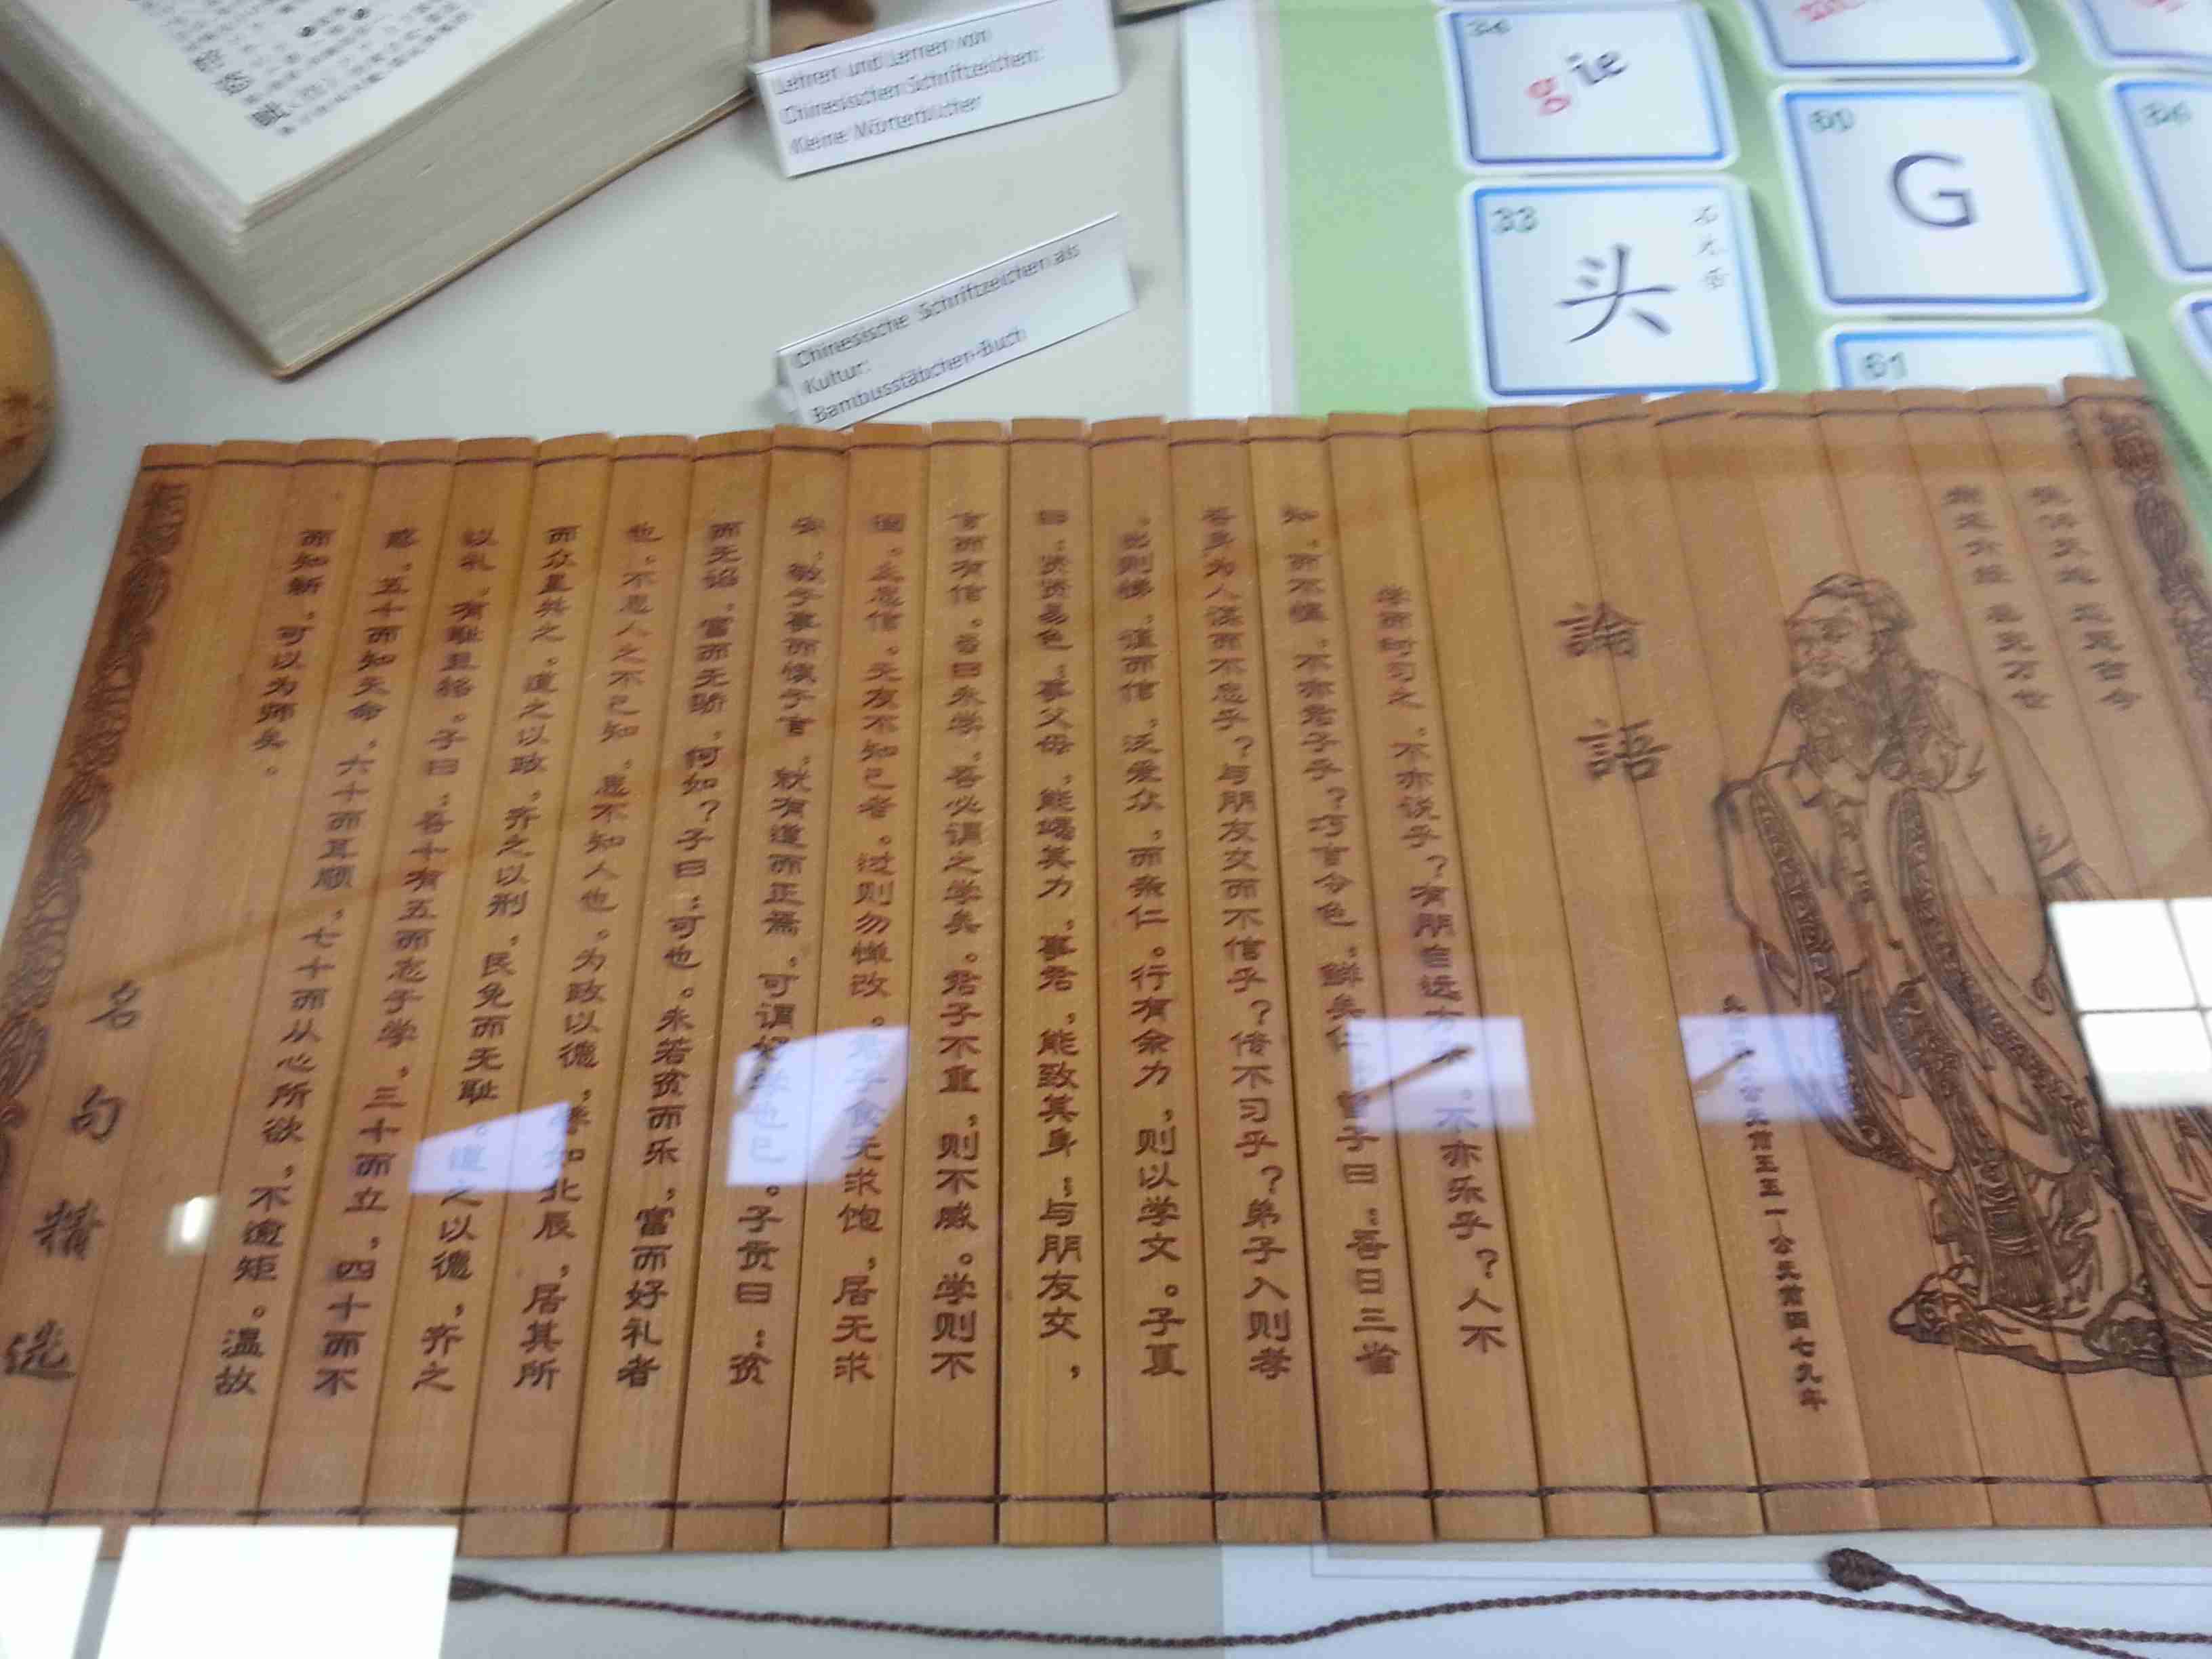 Lehren und Lernen von
Chinesischen Schriftzeichen:
Kleine Wörterbücher
Chinesische Schriftzeichen als
Kultur:
Bambusstäbchen-Buch
34
gie
33
头
60
G
61
德侔天地 道冠古今
删述六经 垂宪万世
公元前五五一—公元前四七九年
論語
学而时习之,不亦说乎?有朋自远方来。不亦乐乎?人不
知,而不愠,不亦君子乎?巧言令色,鲜矣仁 曾子曰:吾日三省
吾身为人谋而不忠乎?与朋友交而不信乎?传不习乎?弟子入则孝
。出则悌,谨而信,泛爱众,而亲仁。行有余力,则以学文。子夏
曰:贤贤易色;事父母,能竭其力,事君,能致其身;与朋友交,
言而有信,虽曰未学,吾必谓之学矣。君子不重,则不威。学则不
固。主忠信。无友不知己者。过则勿惮改。君子食无求饱,居无求
安,敏于事而慎于言,就有道而正焉,可谓好学也已。子贡曰:贫
而无谄,富而无骄,何如?子曰:可也。未若贫而乐,富而好礼者
也。不患人之不己知,患不知人也。为政以德,譬如北辰,居其所
而众星共之。道之以政,齐之以刑,民免而无耻。道之以德,齐之
以礼,有耻且格。子曰,吾十有五而志于学,三十而立,四十而不
惑,五十而知天命,六十而耳顺,七十而从心所欲,不逾矩。温故
而知新,可以为师矣。
名句精选